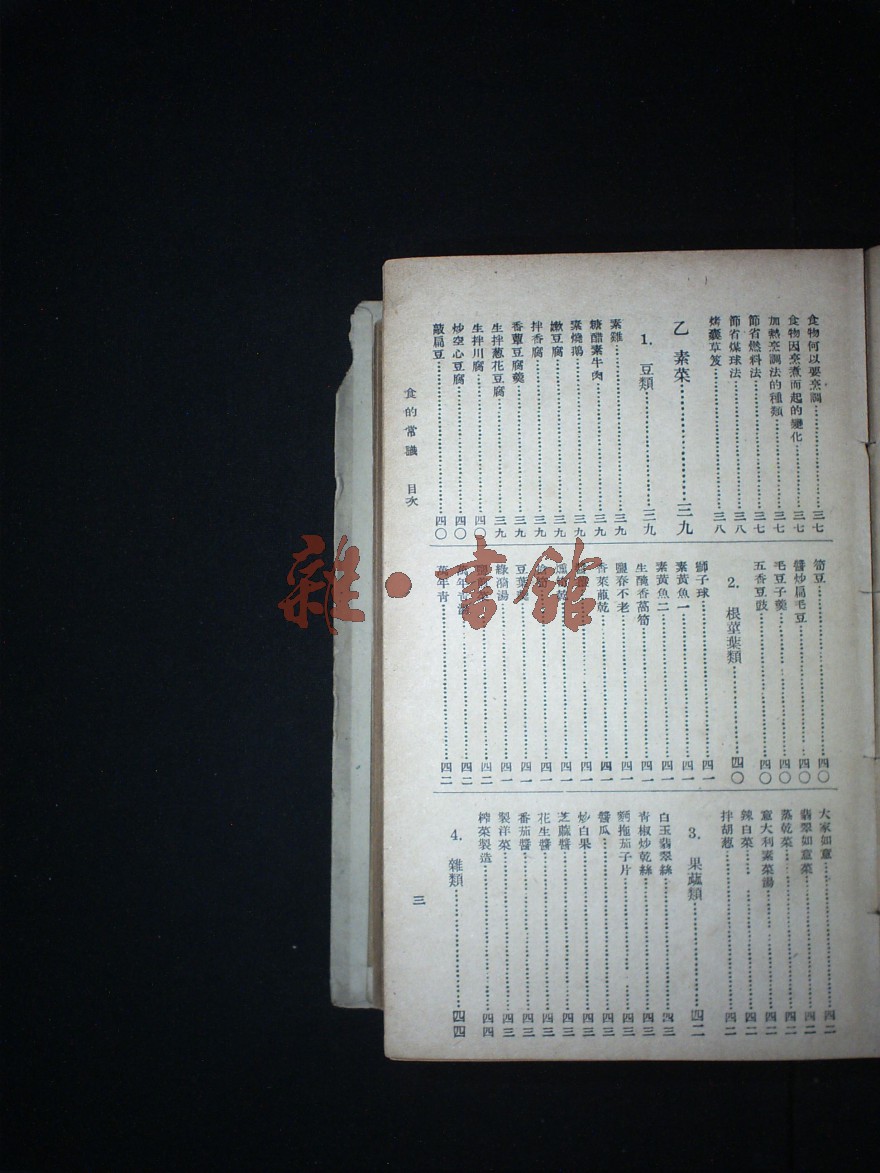 食物何以要烹調……三七
食物因烹煮而起的變化……三七
加熱烹調法的種類……三七
節省燃料法……三七
節省煤球法……三八
烤爨草笈……三八
乙 素菜……三九
1. 豆類……三九
素雞……三九
糖醋素牛肉……三九
素燒鵝……三九
嫩豆腐……三九
拌香腐……三九
香蕈豆腐羹……三九
生拌蔥花豆腐……三九
生拌川腐……四〇
炒空心豆腐……四〇
敲扁豆……四〇
筍豆……四〇
醬炒扁毛豆……四〇
毛豆子羹……四〇
五香豆豉……四〇
2. 根莖葉類……四〇
獅子球……四一
素黃魚一……四一
素黃魚二……四一
生醃香萵筍……四一
鹽春不老……四一
香菜蔴乾……四一
……四一
……四一
……四一
豆葉……四一
綠湯……四一
……四二
萬年青湯……四二
萬年青……四二
大家如意……四二
翡翠如意菜……四二
蒸乾菜……四二
意大利素菜湯……四二
辣白菜……四二
拌胡蔥……四二
3. 果蔬類……四二
白玉翡翠絲……四三
青椒炒乾絲……四三
麵拖茄子片……四三
醬瓜……四三
炒白果……四三
芝蔴醬……四三
花生醬……四三
番茄醬……四三
製洋菜……四三
榨菜製造……四四
4. 雜類……四四
食的常識 目次
三
雜·書館